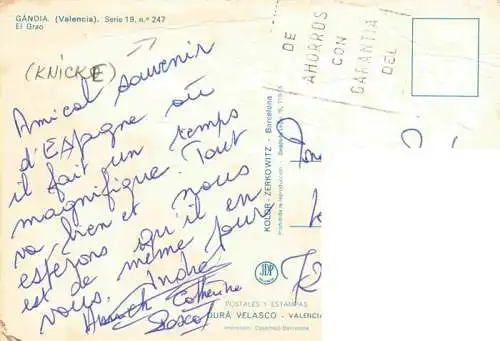 GANDIA. (Valencia). Serie 19, n.º 247
El Grao
(KNICKE)
Amical souvenir
d'Espagne où
il fait un temps
magnifique. Tout
va bien et nous
espérons qu'il en
est de même pour
vous. André
Catherine
DE
AHORROS
CON
GARANTIA
DEL
KOLOR-ZERKOWITZ - Barcelona
Prohibida la reproducción
JDP
POSTALES Y ESTAMPAS
DURÁ VELASCO - VALENCIA